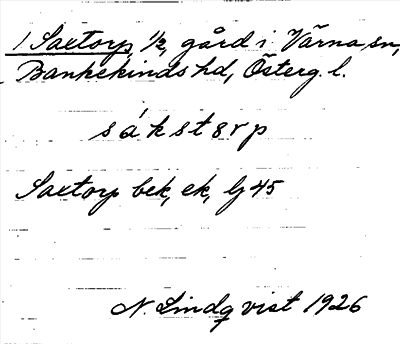 1 Saxtorp, 1/2, gård i Värna sn,
Bankekinds hd, Österg. l.
s á k s t ɛ r p
Saxtorp bek, ek, Lj 45
N. Lindqvist 1926